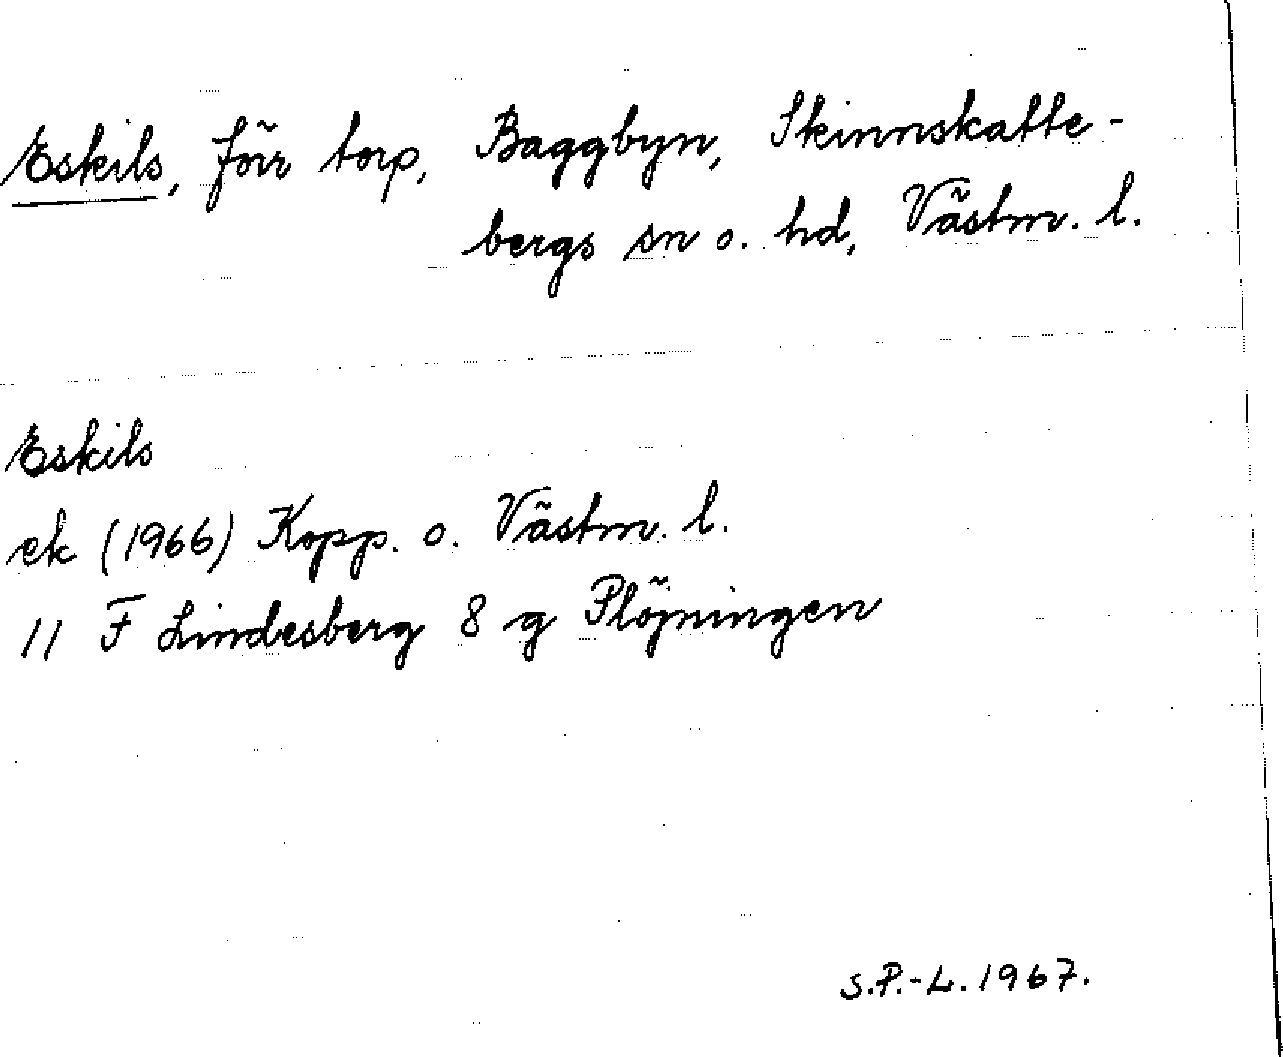 Eskils, förr torp, Baggbyn, Skinnskatte-
bergs sn o. hd, Västm. l.
Eskils
ek (1966) Kopp. o. Västm. l.
11 F Lindesberg 8 g Plöjningen
S.P.-L. 1967.